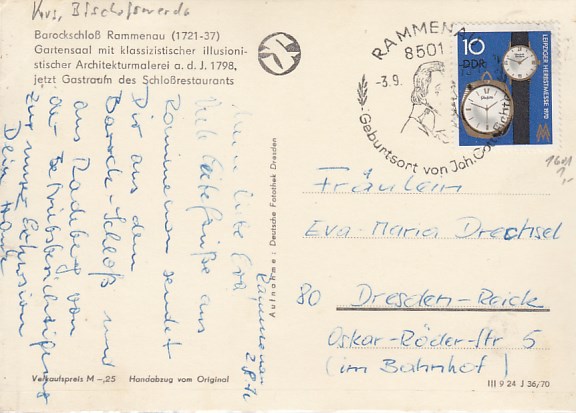 Krs. Bischofswerda
Barockschloß Rammenau (1721-37)
Gartensaal mit klassizistischer illusioni-
stischer Architekturmalerei a. d. J. 1798,
jetzt Gastraum des Schloßrestaurants
RAMMENA
8501
-3.9.
Geburtsort von Joh. Gottl. Fichte
10
DDR
LEIPZIGER HERBSTMESSE 1970
Rammenau
Meine liebe Eva
Viele Grüße aus
Rammenau sendet
Dir aus dem
Barock-Schloß und
aus Radeberg von
der Betriebsbesichtigung
zur
Dein
Aufnahme: Deutsche Fotothek Dresden
Fräulein
Eva-Maria Drechsel
80 Dresden-Reick
Oskar-Röder-Str 5
(im Bahnhof)
Verkaufspreis M -,25 Handabzug vom Original
III 9 24 J 36/70